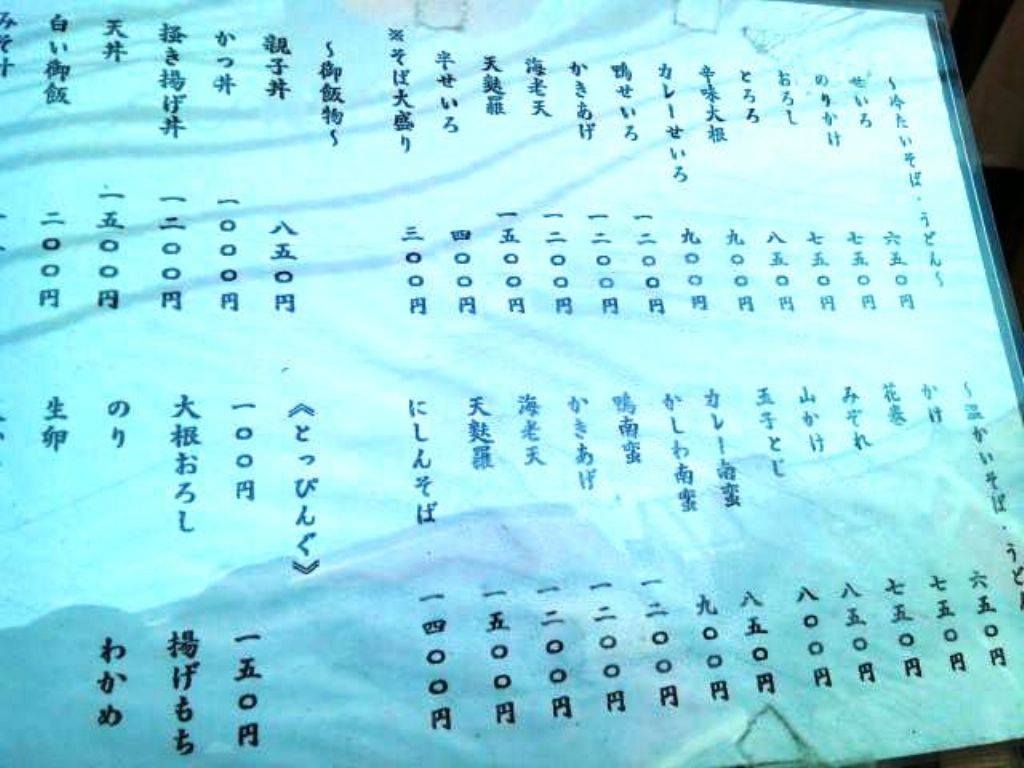 ～冷たいそば・うどん～
せいろ 六五〇円
のりかけ 七五〇円
おろし 七五〇円
とろろ 八五〇円
辛味大根 九〇〇円
カレーせいろ 九〇〇円
鴨せいろ 一二〇〇円
かきあげ 一二〇〇円
海老天 一二〇〇円
天麩羅 一五〇〇円
半せいろ 四〇〇円
※そば大盛り 三〇〇円
～御飯物～
親子丼 八五〇円
かつ丼 一〇〇〇円
掻き揚げ丼 一二〇〇円
天丼 一五〇〇円
白い御飯 二〇〇円
みそ汁
～温かいそば・うどん
かけ 六五〇円
花巻 七五〇円
みぞれ 七五〇円
山かけ 八五〇円
玉子とじ 八〇〇円
カレー南蛮 八五〇円
かしわ南蛮 九〇〇円
鴨南蛮 一二〇〇円
かきあげ 一二〇〇円
海老天 一二〇〇円
天麩羅 一五〇〇円
にしんそば 一四〇〇円
《とっぴんぐ》
一〇〇円 一五〇円
大根おろし 揚げもち
のり わかめ
生卵